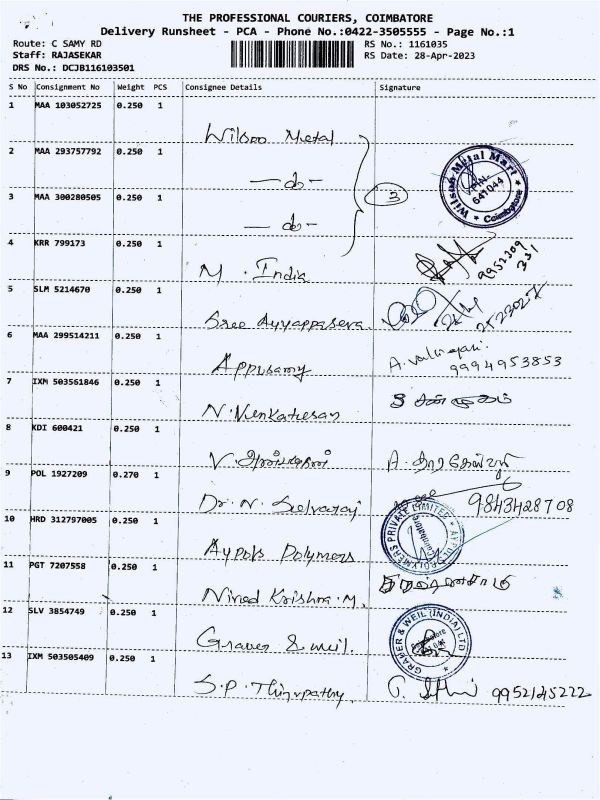 THE PROFESSIONAL COURIERS, COIMBATORE
Delivery Runsheet - PCA - Phone No.:0422-3505555 - Page No.:1
Route: C SAMY RD
RS No.: 1161035
Staff: RAJASEKAR
RS Date: 28-Apr-2023
DRS No.: DCJB116103501
S No Consignment No Weight PCS Consignee Details Signature
1 MAA 103052725 0.250 1 Wilson Metal
2 MAA 293757792 0.250 1 —do—
3 MAA 300280505 0.250 1 —do—
3
Wilson Metal Mart * Coimbatore * PIN 641044
4 KRR 799173 0.250 1 M. India
5 SLM 5214670 0.250 1 Sree Ayyappaseva
6 MAA 299514211 0.250 1 Appusamy
9994953853
7 IXM 503561846 0.250 1 N. Venkatesan சண்முகம்
8 KDI 600421 0.250 1
9 POL 1927209 0.270 1 Dr. N. Selvaraj 9843428708
10 HRD 312797005 0.250 1 Aypols Polymers
AYPOLS POLYMERS PRIVATE LIMITED Coimbatore
11 PGT 7207558 0.250 1 Krishna. M.
12 SLV 3854749 0.250 1 Grauer & Weil.
GRAUER & WEIL (INDIA) LTD Coimbatore
13 IXM 503505409 0.250 1 S. P. Thirupathy 9952145222